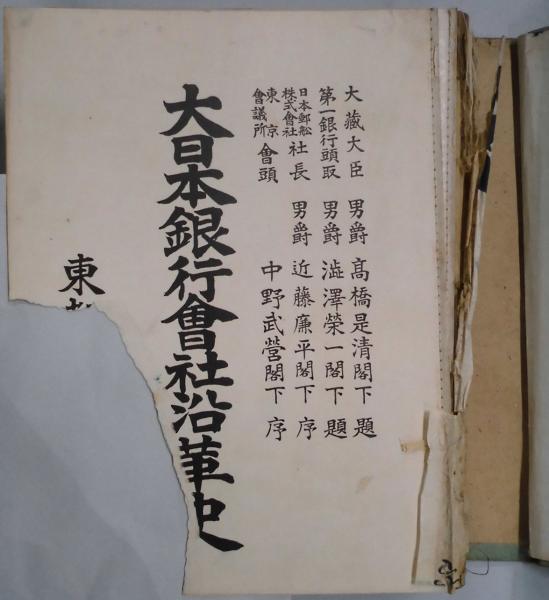 大藏大臣 男爵 高橋是清閣下 題
第一銀行頭取 男爵 澁澤榮一閣下 題
日本郵舩株式會社 社長 男爵 近藤廉平閣下 序
東京會議所 會頭 中野武營閣下 序
大日本銀行會社沿革史
東